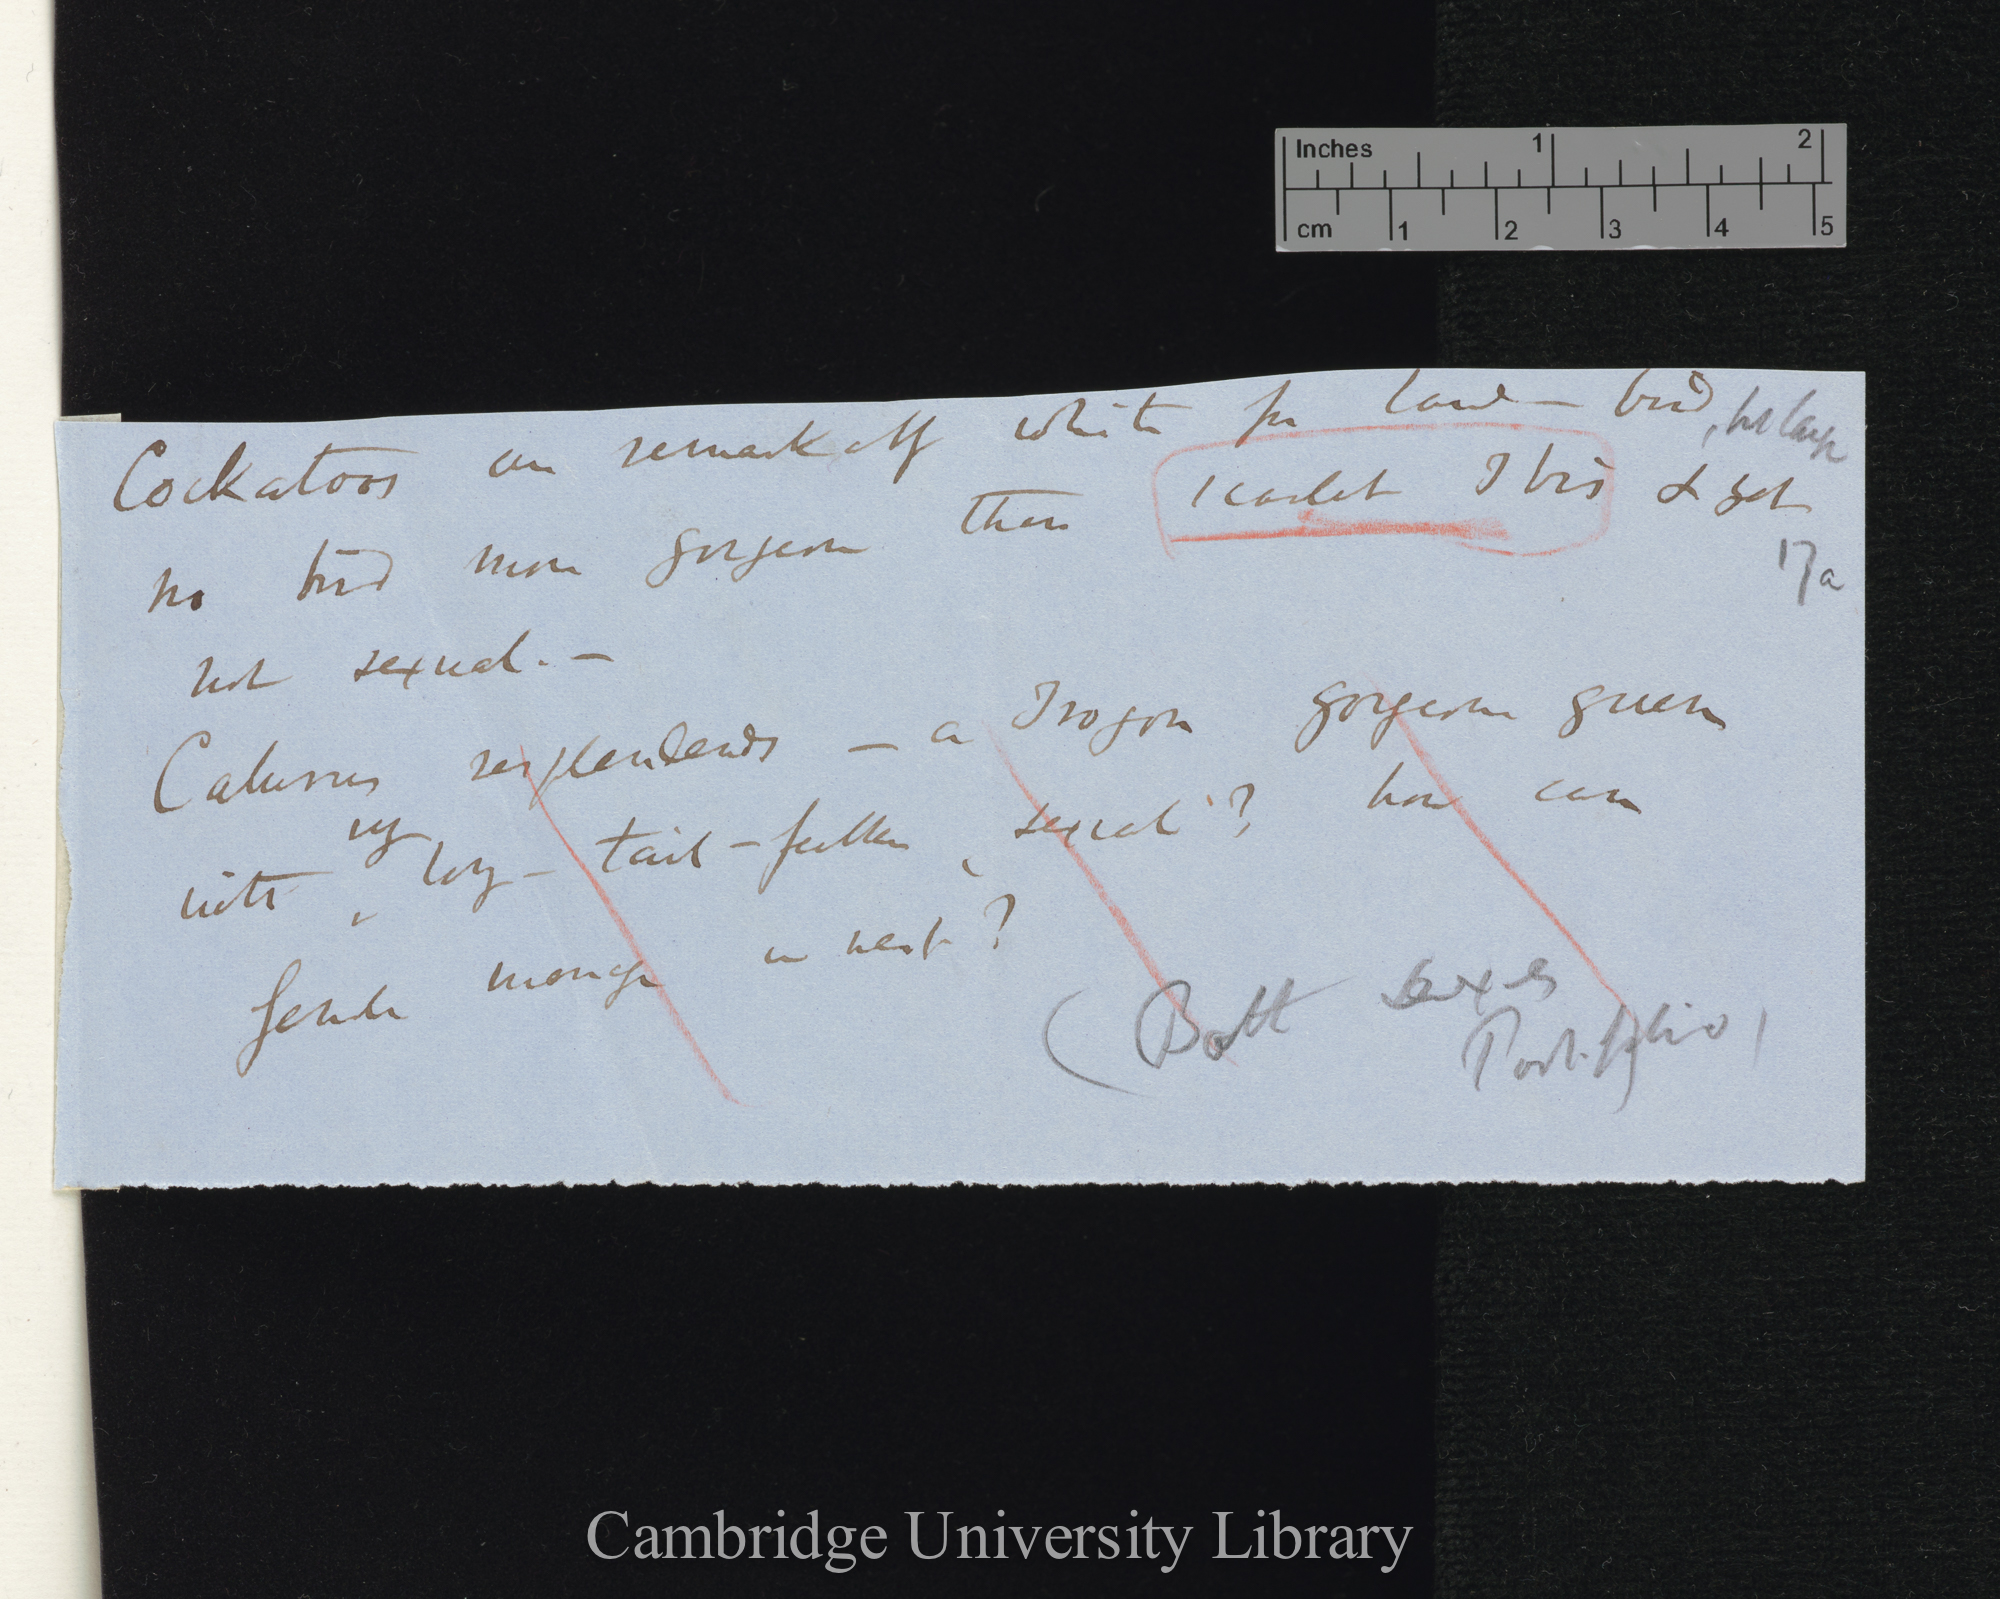 Inches 1 2
cm 1 2 3 4 5
Cockatoos are remarkably white for land-bird, but large
no bird more gorgeous than scarlet Ibis & yet
17a
not sexual. —
Calurus resplendens — a Trogon gorgeous green
with very long-tail-feathers sexual? how can
female manage in nest?
(Both sexes
Portfolio)
Cambridge University Library